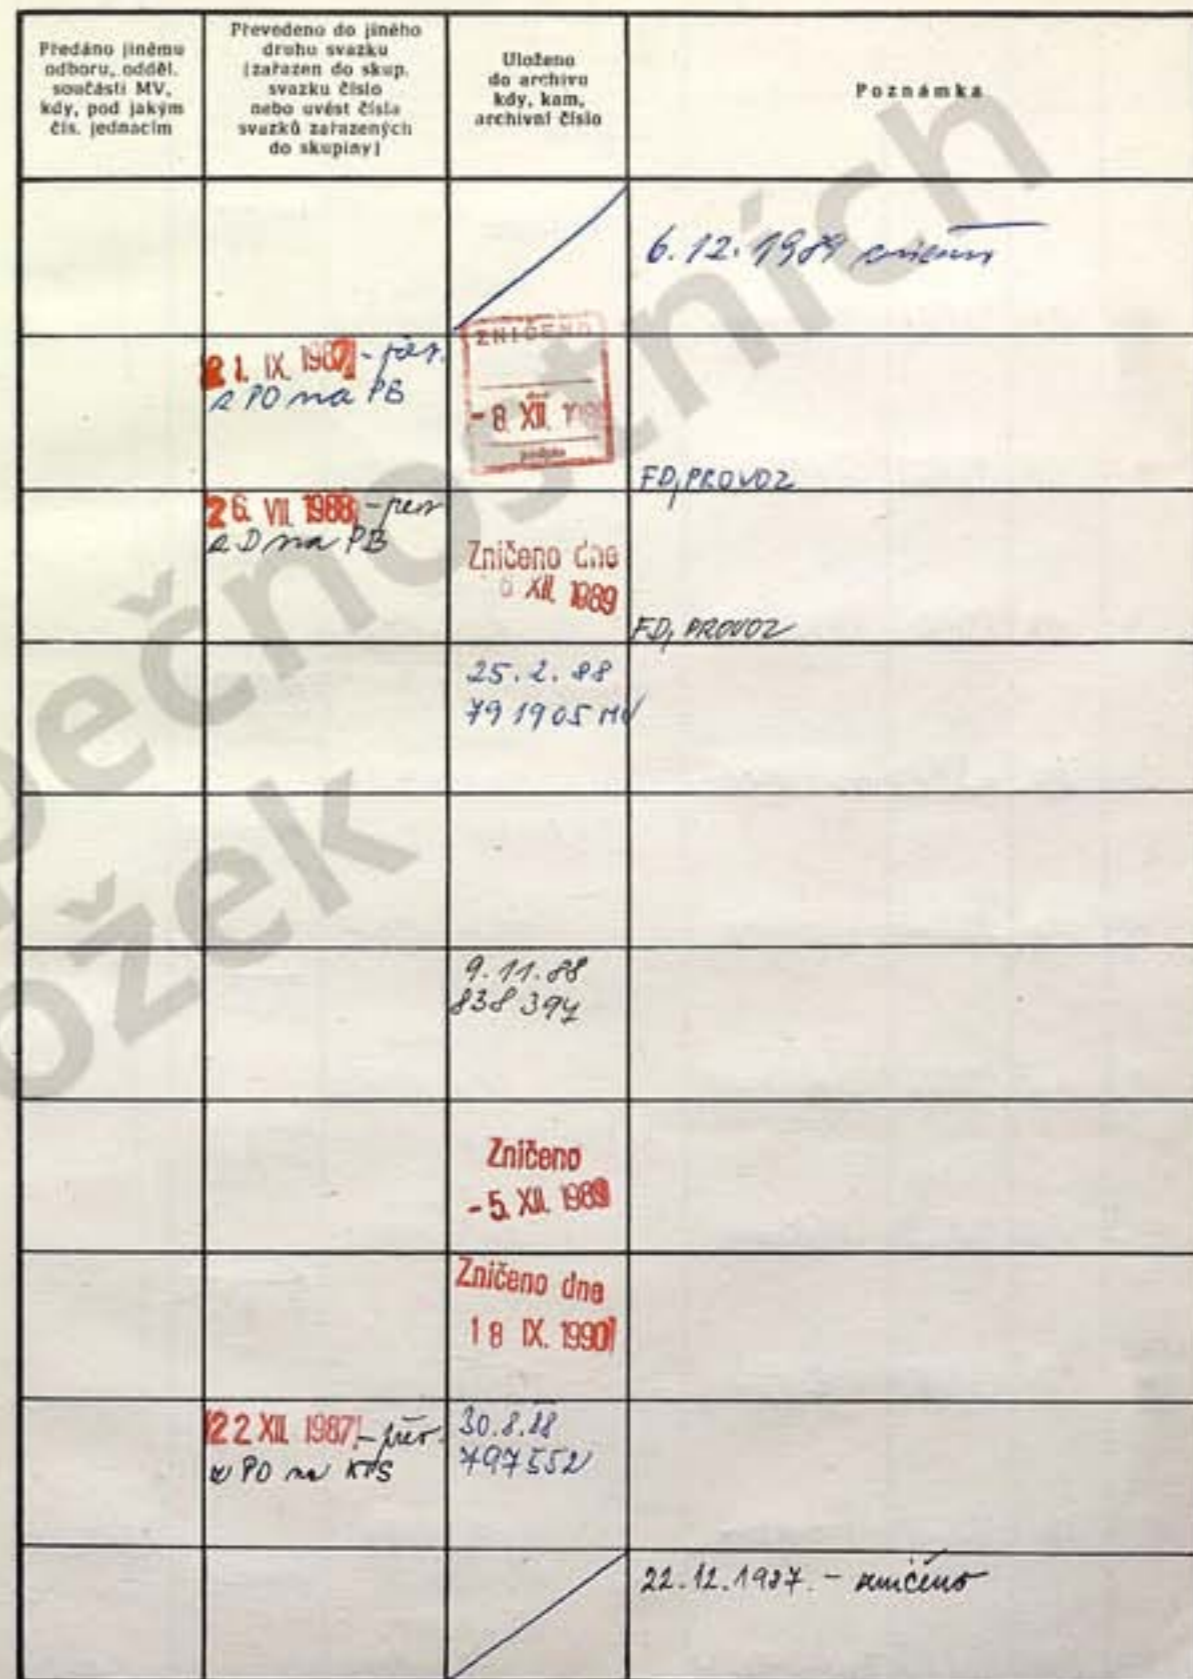 Předáno jinému
odboru, odděl.
součásti MV,
kdy, pod jakým
čís. jednacím
Převedeno do jiného
druhu svazku
(zařazen do skup.
svazku číslo
nebo uvést čísla
svazků zařazených
do skupiny)
Uloženo
do archivu
kdy, kam,
archivní číslo
Poznámka
6.12.1989 zničeno
21. IX. 1987 - přev.
z PO na PB
ZNIČENO
- 8. XII.
podpis
FD, PROVOZ
26. VII. 1988 - přev
z D na PB
Zničeno dne
XII. 1989
FD, PROVOZ
25.2.88
791905 MV
9.11.88
838 394
Zničeno
- 5. XII. 1989
Zničeno dne
18 IX. 1990
22 XII. 1987 - přev.
z PO na KTS
30.8.88
797552
22.12.1987. - zničeno
ečnostních
ožek